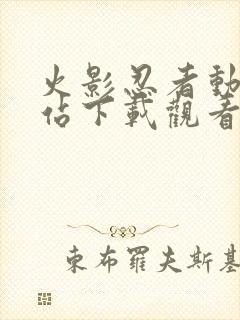 火影忍者動
佔下載觀看
東布羅夫斯基